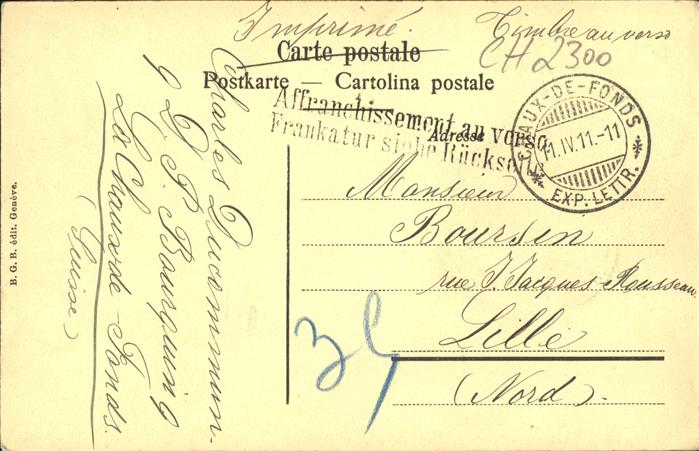 Imprimé. Timbre au verso
CH 2300
Carte postale
Postkarte — Cartolina postale
Affranchissement au verso
Frankatur siehe Rückseite
Adresse
CHAUX-DE-FONDS
11.IV.11.-11
EXP. LETTR.
Monsieur
Boursin
rue J. Jacques-Rousseau
Lille
(Nord)
Charles Ducommun.
9 D. P. Bourquin 9
La Chaux-de-Fonds.
(Suisse)
B. G. B. édit. Genève.